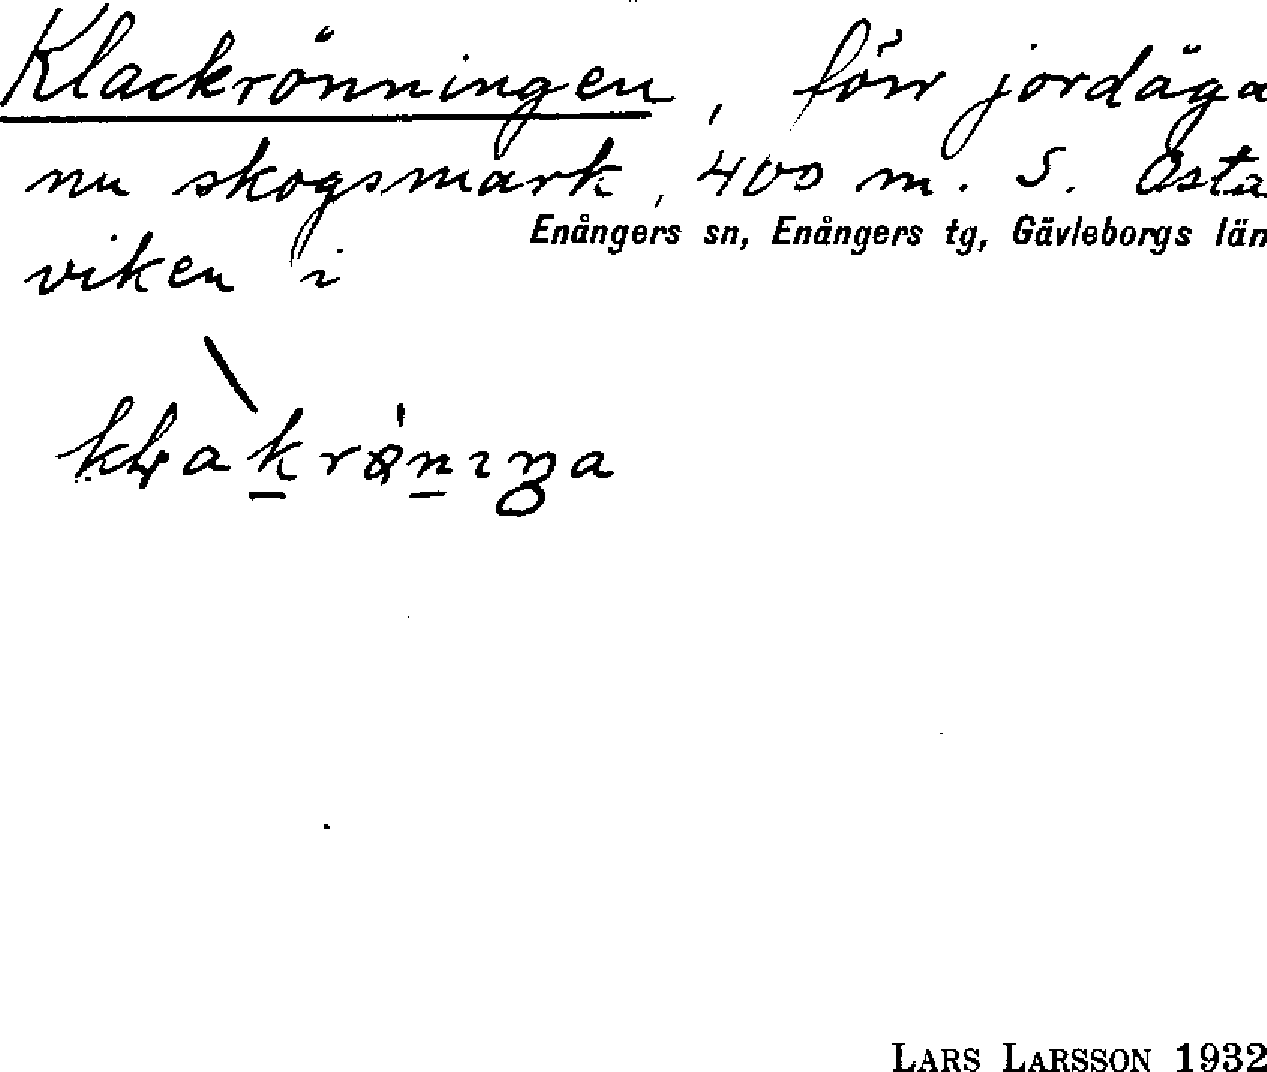 Klackrönningen, förr jordäga
nu skogsmark, 400 m. S. Östa
Enångers sn, Enångers tg, Gävleborgs län
viken i
LARS LARSSON 1932